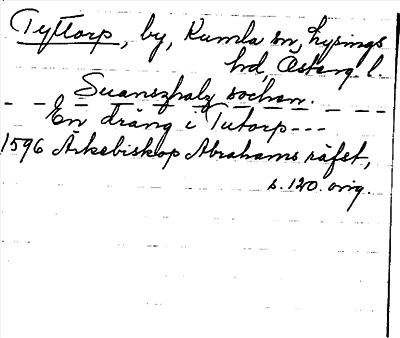 Tyttorp, by, Kumla sn, Lysings
hd, Österg. l.
Suanszhalz sochen.
En dräng i Tutorp---
1596 Ärkebiskop Abrahams räfst,
s. 120. orig.